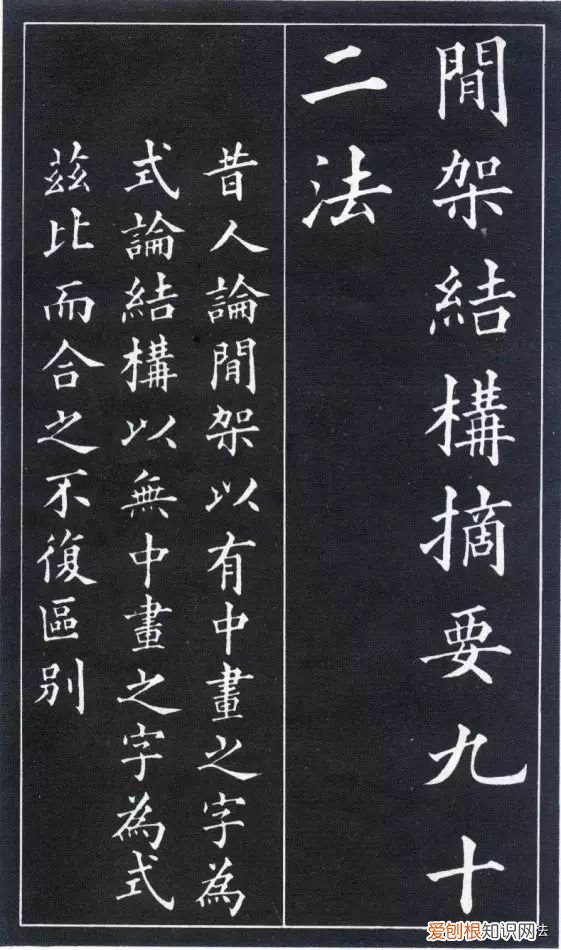 閒架結構摘要九十
二法
昔人論閒架以有中畫之字為
式論結構以無中畫之字為式
茲比而合之不復區別
爱刨根知识网法